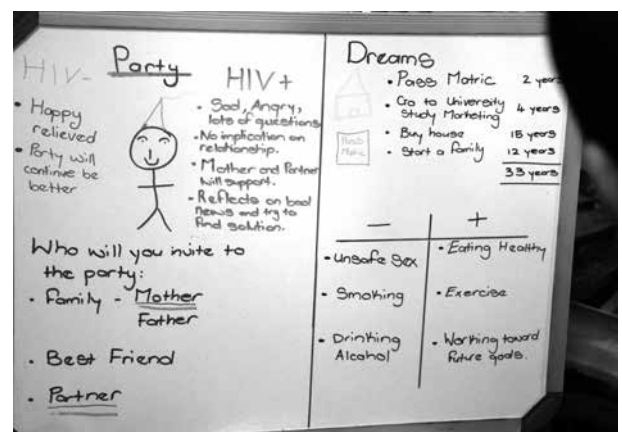 HIV-
Party
HIV+
• Happy
relieved
• Party will
continue be
better
• Sad, Angry,
lots of questions
• No implication on
relationship.
• Mother and Partner
will support.
• Reflects on bad
news and try to
find solution.
Who will you invite to
the party:
• Family - Mother
Father
• Best Friend
• Partner
Dreams
• Pass Matric 2 years
• Go to University 4 years
Study Marketing
• Buy house 15 years
• Start a family 12 years
33 years
Pass
Matric
− +
• Unsafe Sex
• Smoking
• Drinking
Alcohol
• Eating Healthy
• Exercise
• Working toward
future goals.